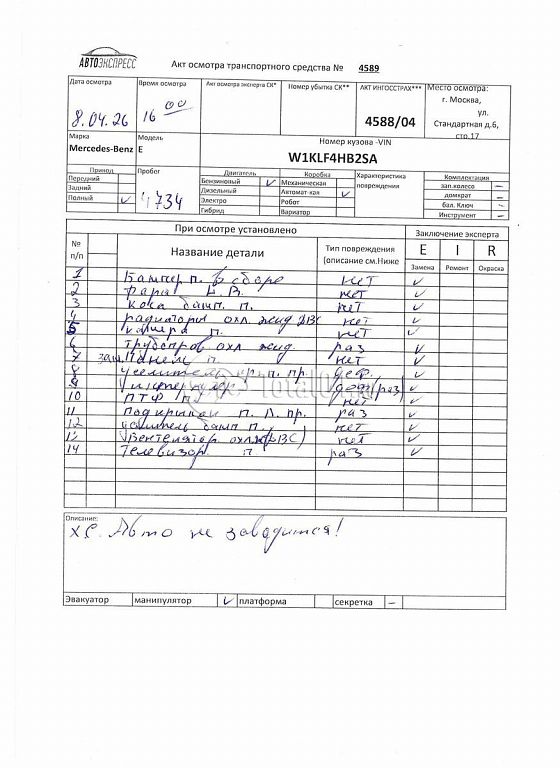 АВТОЭКСПРЕСС
Акт осмотра транспортного средства № 4589
Дата осмотра
8.04.26
Время осмотра
16 00
Акт осмотра эксперта СК*
Номер убытка СК**
АКТ ИНГОССТРАХ***
4588/04
Место осмотра:
г. Москва,
ул.
Стандартная д.6,
стр.17
Марка
Mercedes-Benz
Модель
E
Номер кузова -VIN
W1KLF4HB2SA
Привод
Передний
Задний
Полный ✓
Пробег
4734
Двигатель
Бензиновый ✓
Дизельный
Электро
Гибрид
Коробка
Механическая
Автомат-кая ✓
Робот
Вариатор
Характеристика
повреждения
Комплектация
зап.колесо –
домкрат –
бал. Ключ –
Инструмент –
При осмотре установлено
Заключение эксперта
№ п/п
Название детали
Тип повреждения
(описание см.Ниже
E I R
Замена Ремонт Окраска
1 Бампер п. в сборе нет ✓
2 Фара L. В. нет ✓
3 Коса бамп. п. нет ✓
4 радиаторы охл. жид ДВС нет ✓
5 камера п. нет ✓
6 трубопров охл жид. раз ✓
7 зам. Панель п нет ✓
8 усилитель кр. п. пр. деф. ✓
9 деф(раз) ✓
10 ПТФ п нет ✓
11 Подкрылки п. л. пр. раз ✓
12 усилитель бамп п. нет ✓
13 Вентелятор охл(ДВС) нет ✓
14 Телевизор п раз ✓
Total0
Описание:
Х/С. Авто не заводится!
Эвакуатор манипулятор ✓ платформа секретка –